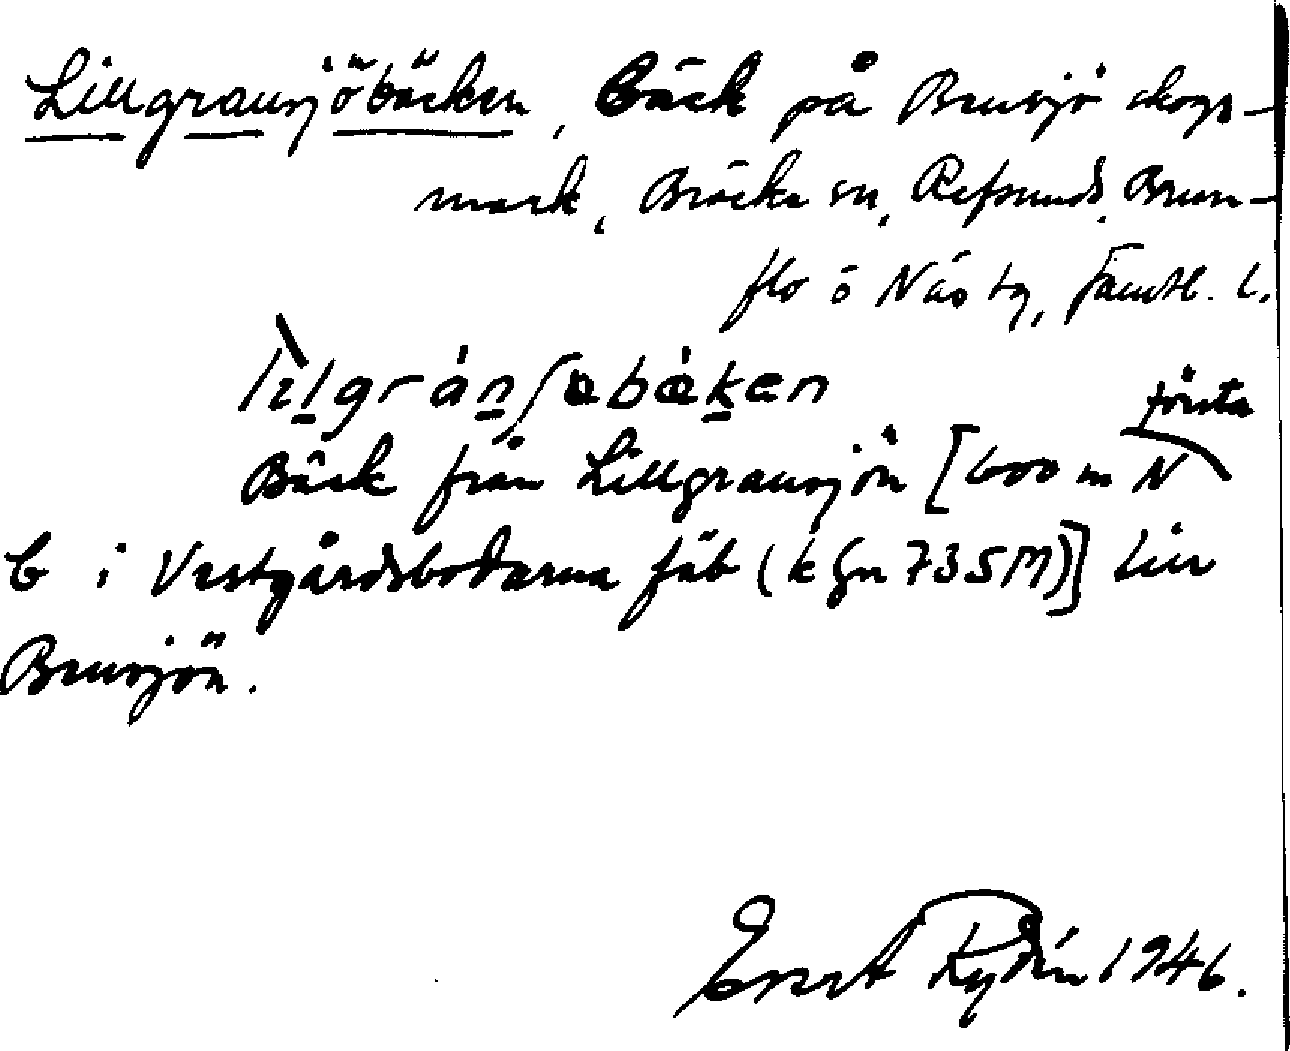 Lillgransjöbäcken, Bäck på Bensjö skogs-
mark, Bräcke sn, Refsunds, Brun-
flo o Näs tg, Jämtl. l.
lilgránʃəbäken
första
Bäck från Lillgransjön [600 m N
b i Västgårdsbodarna fäb (k gn 735M)] till
Bensjön.
Evert Rydén 1946.